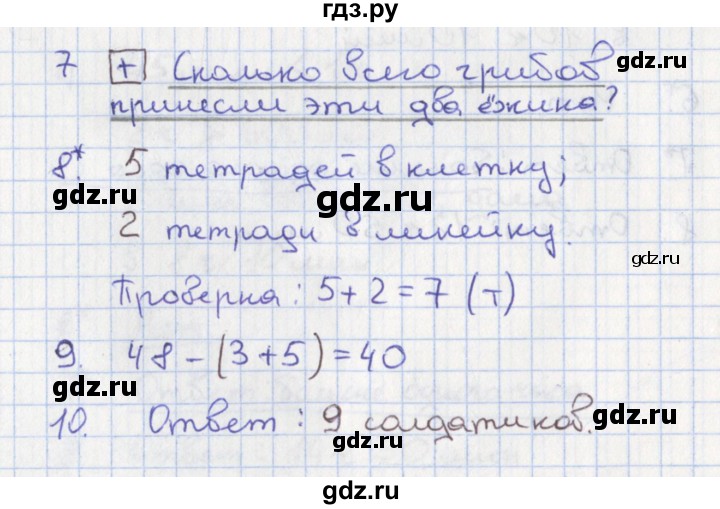 гдз.ру
7 + Сколько всего грибов
принесли эти два ёжика?
gdz.ru
gdz.ru
8*. 5 тетрадей в клетку;
gdz.ru
gdz.ru
2 тетради в линейку.
Проверка: 5+2=7 (т)
9. 48-(3+5)=40
gdz.ru
gdz.ru
10. Ответ: 9 солдатиков.
gdz.ru